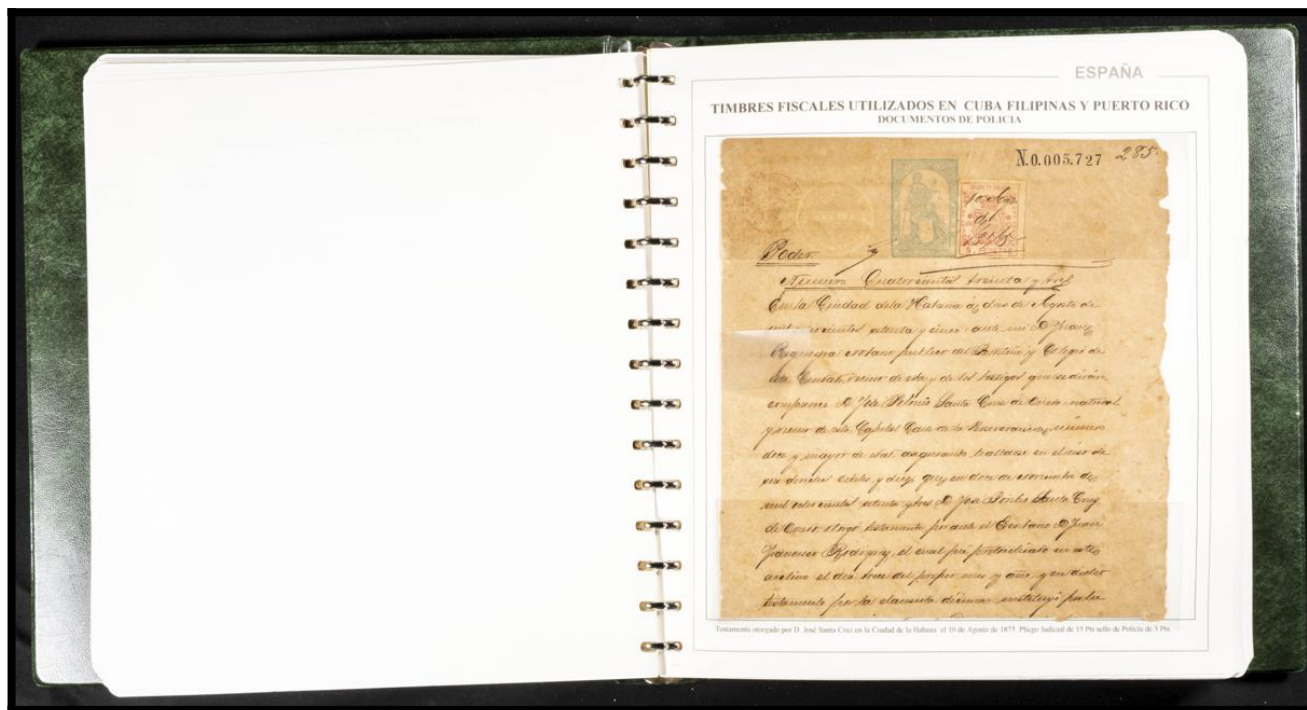 ESPAÑA
TIMBRES FISCALES UTILIZADOS EN CUBA FILIPINAS Y PUERTO RICO
DOCUMENTOS DE POLICIA
N.0.005.727 285
Poder
Numero Cuatrocientos treinta y tres
En la Ciudad de la Habana á dos de Agosto de
mil ochocientos setenta y cinco ante mi D. Franco
notario publico del y Colegio de
vecino de esta y de los testigos que se dirán
D. José Santa Cruz de natural
y vecino de esta Capital Calle de la Perseverancia número
doce y mayor de edad, asegurando hallarse en el uso de
sus derechos civiles y dijo que en doce de noviembre de
mil ochocientos setenta y tres D. José Santa Cruz
de otorgó testamento por ante el Escribano D. Juan
Francisco Rodriguez, el cual fué protocolizado en este
archivo el dia trece del propio mes y año, y en dicho
testamento por la clausula décima instituyó por
Testamento otorgado por D. José Santa Cruz en la Ciudad de la Habana el 10 de Agosto de 1875. Pliego Judicial de 15 Pts sello de Policia de 5 Pts